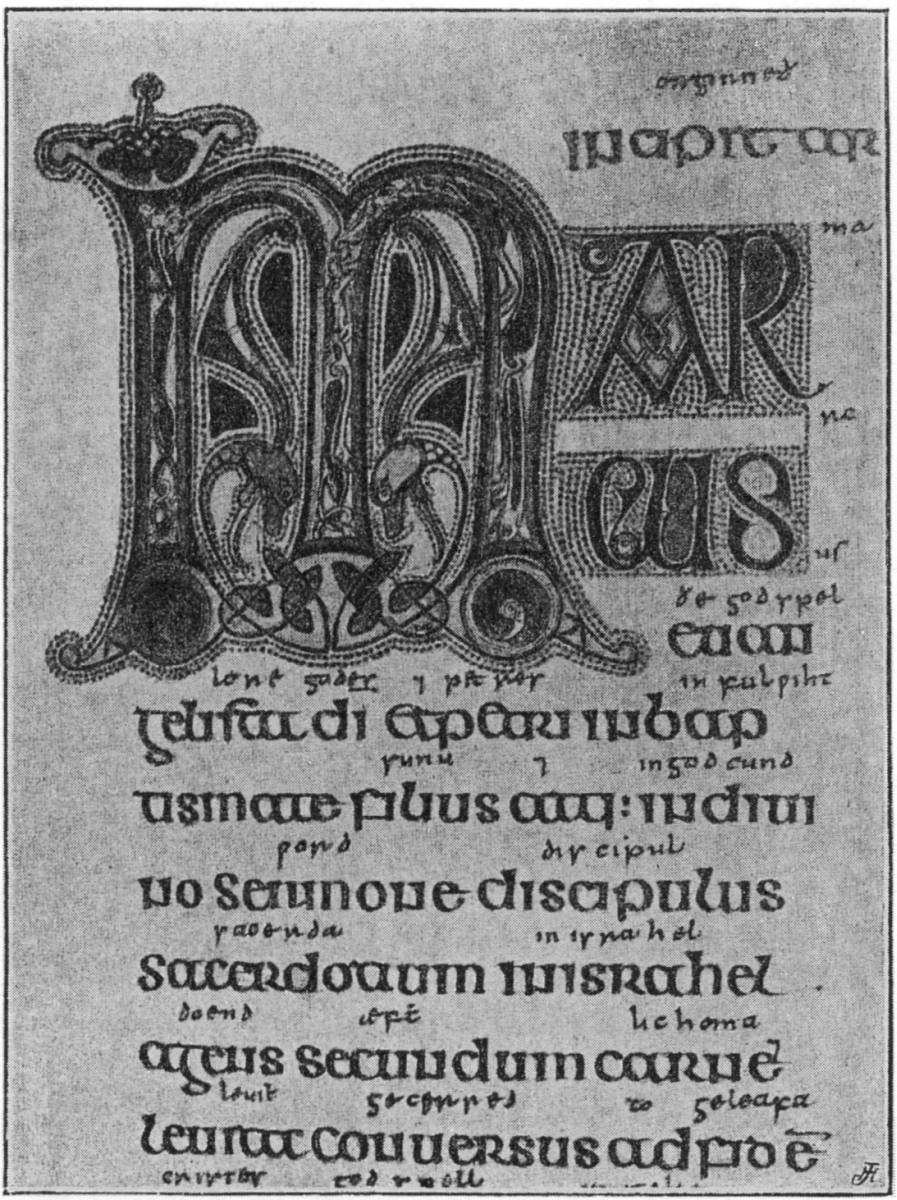 onginneð
incipit
ma
MAR
CUS
us
ðe godspel
euan
godes ⁊ petres in fulpiht
gelista di et petri in bap
sunu ⁊ in godcund
tismate filius atq: in diui
word discipul
no sermone discipulus
sacerda in israhel
sacerdotium in israhel
doend æft lichoma
agens secundum carnē
leuit gecerred to geleafa
leuita conuersus ad fidē